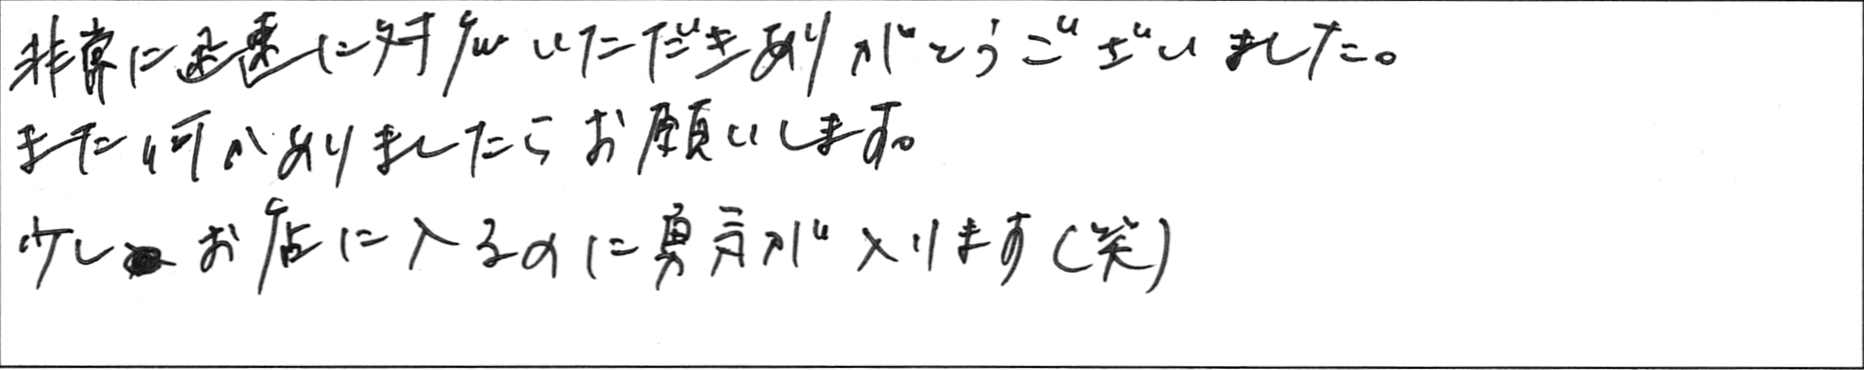 非常に迅速に対応いただきありがとうございました。
また何かありましたらお願いします。
少しお店に入るのに勇気が入ります(笑)